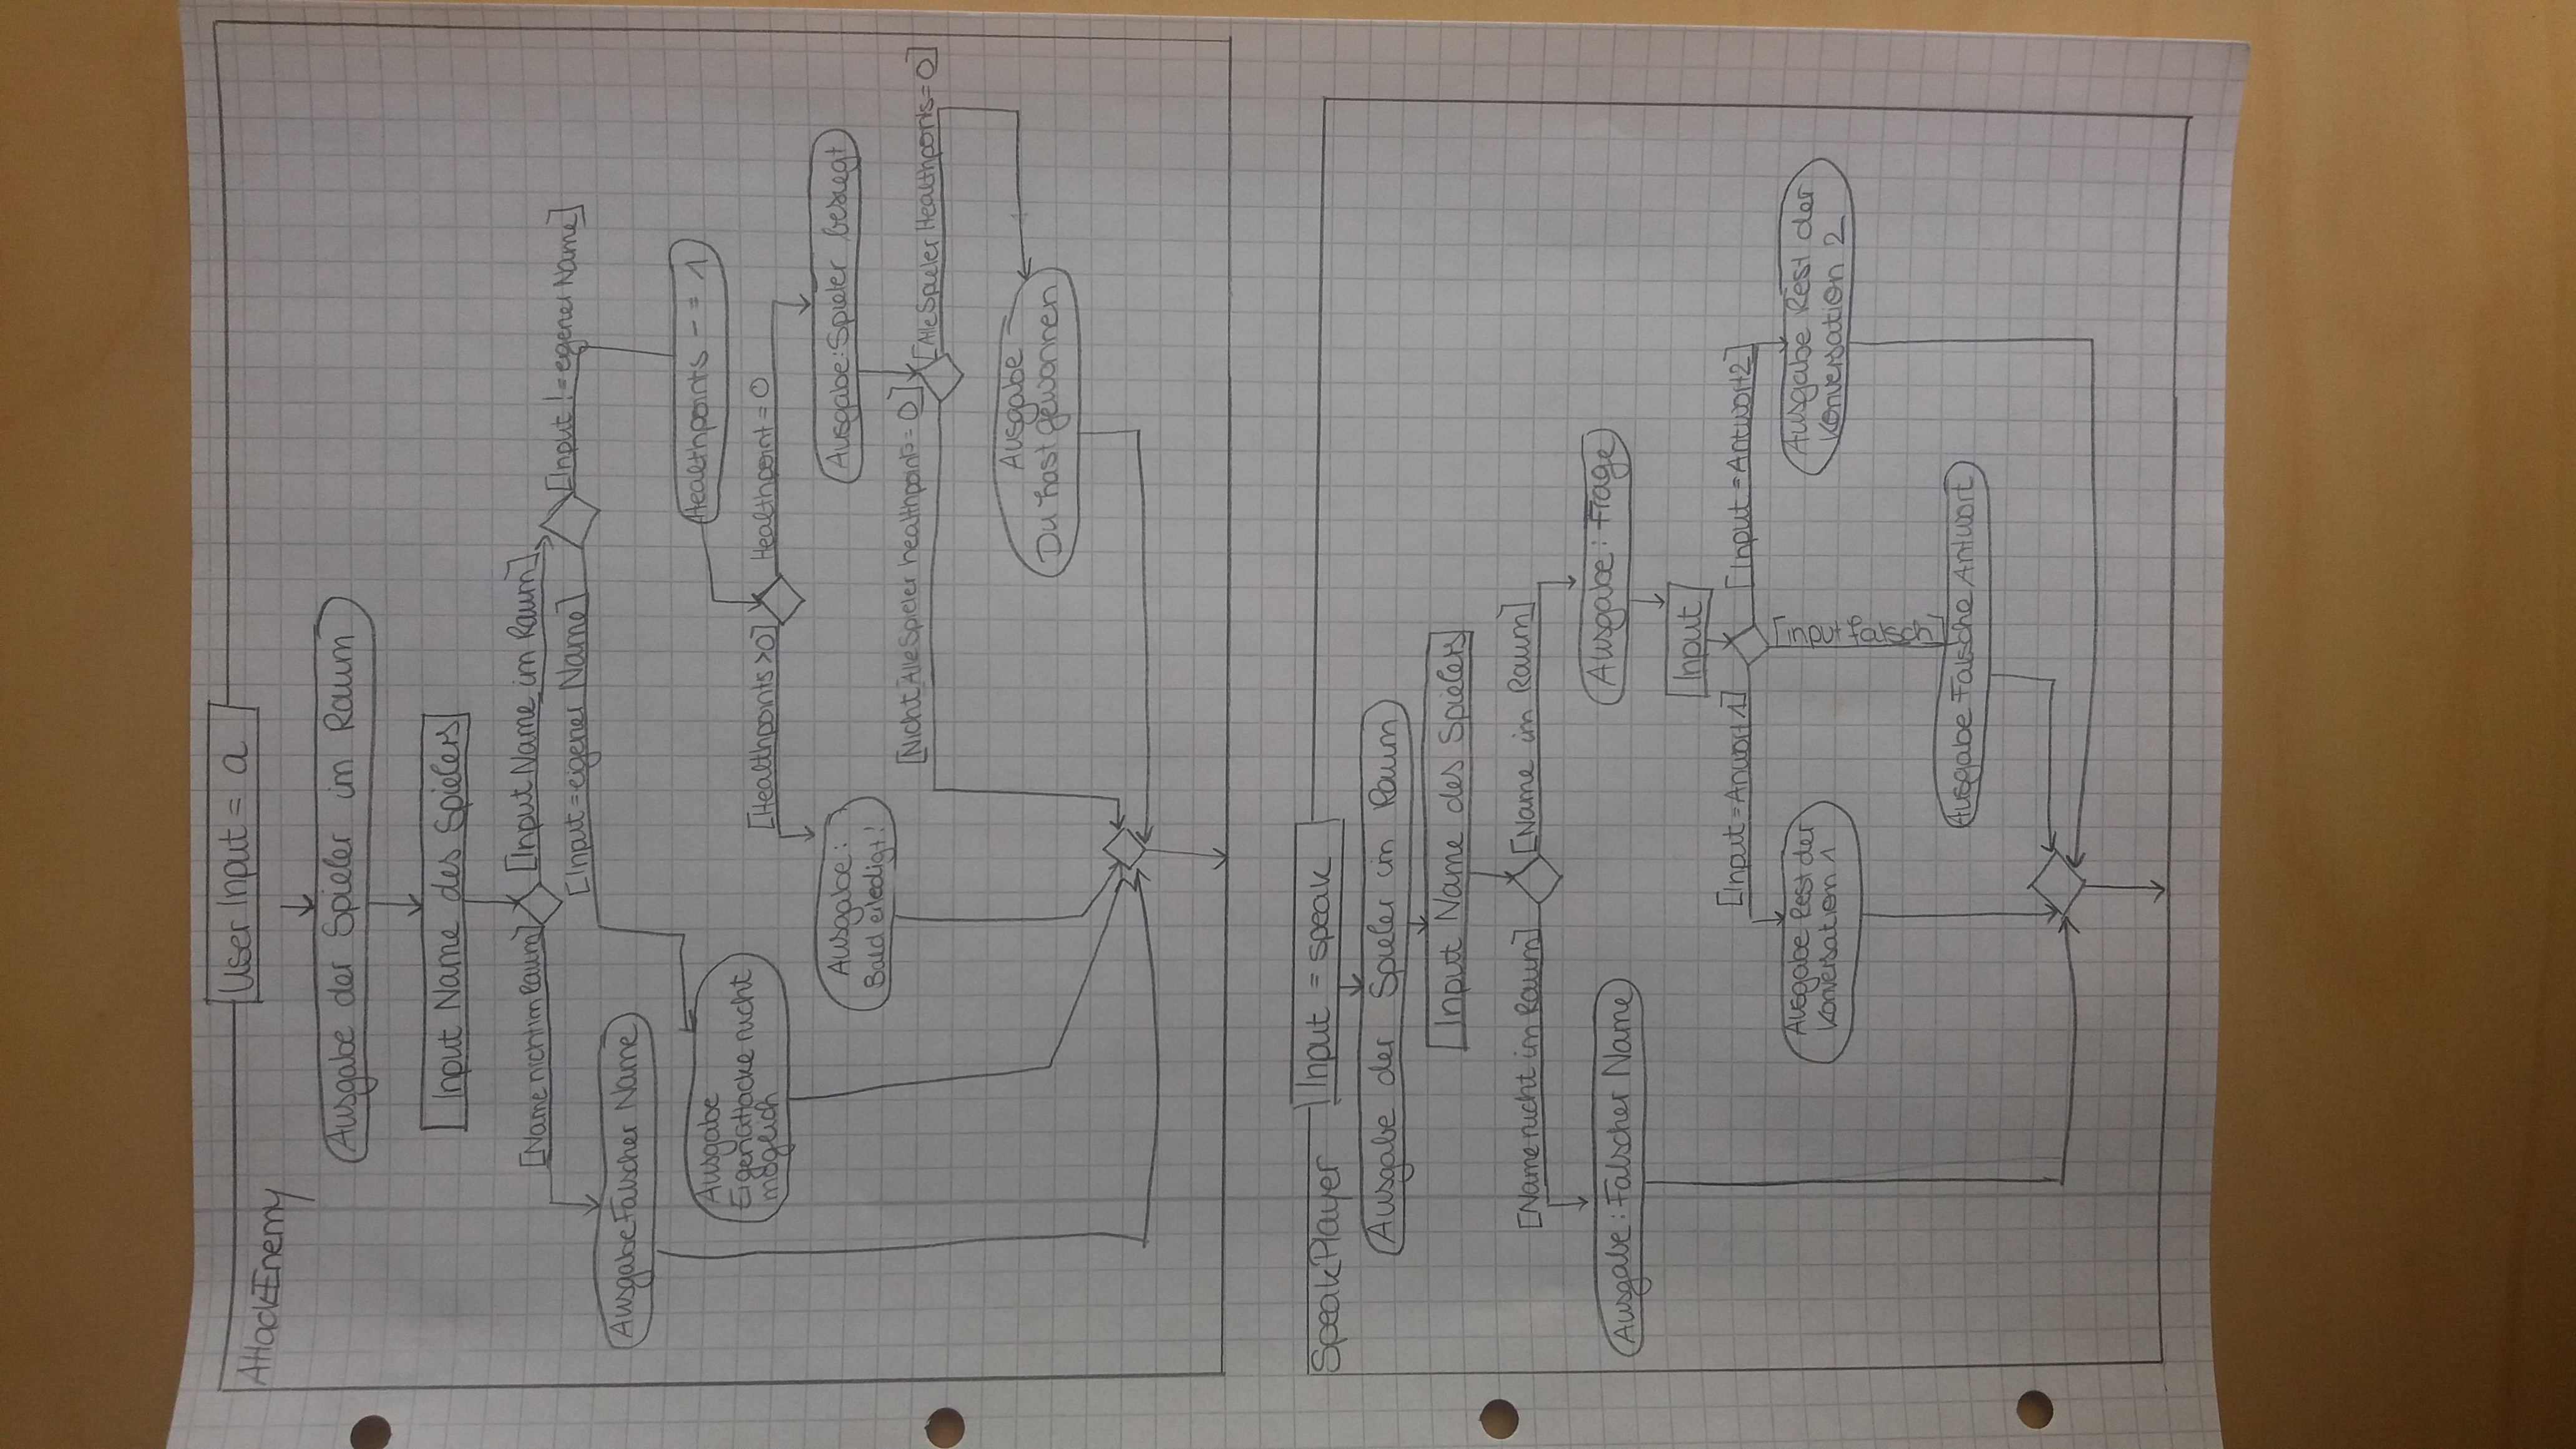 User Input = a
AttackEnemy
Ausgabe der Spieler im Raum
Input Name des Spielers
[Name nicht im Raum]
[Input Name im Raum]
[Input = eigener Name]
[Input != eigener Name]
Ausgabe Falscher Name
Ausgabe
Eigenattacke nicht
möglich
Healthpoints -= 1
[Healthpoints >0]
Healthpoint = 0
Ausgabe:
Bald erledigt!
Ausgabe: Spieler besiegt
[Nicht Alle Spieler healthpoints = 0]
[Alle Spieler Healthpoints = 0]
Ausgabe
Du hast gewonnen
SpeakPlayer
Input = speak
Ausgabe der Spieler im Raum
Input Name des Spielers
[Name nicht im Raum]
[Name im Raum]
Ausgabe: Falscher Name
Ausgabe: Frage
Input
[Input = Anwort 1]
[Input = Antwort 2]
[input falsch]
Ausgabe Rest der
Konversation 1
Ausgabe Rest der
Konversation 2
Ausgabe Falsche Antwort